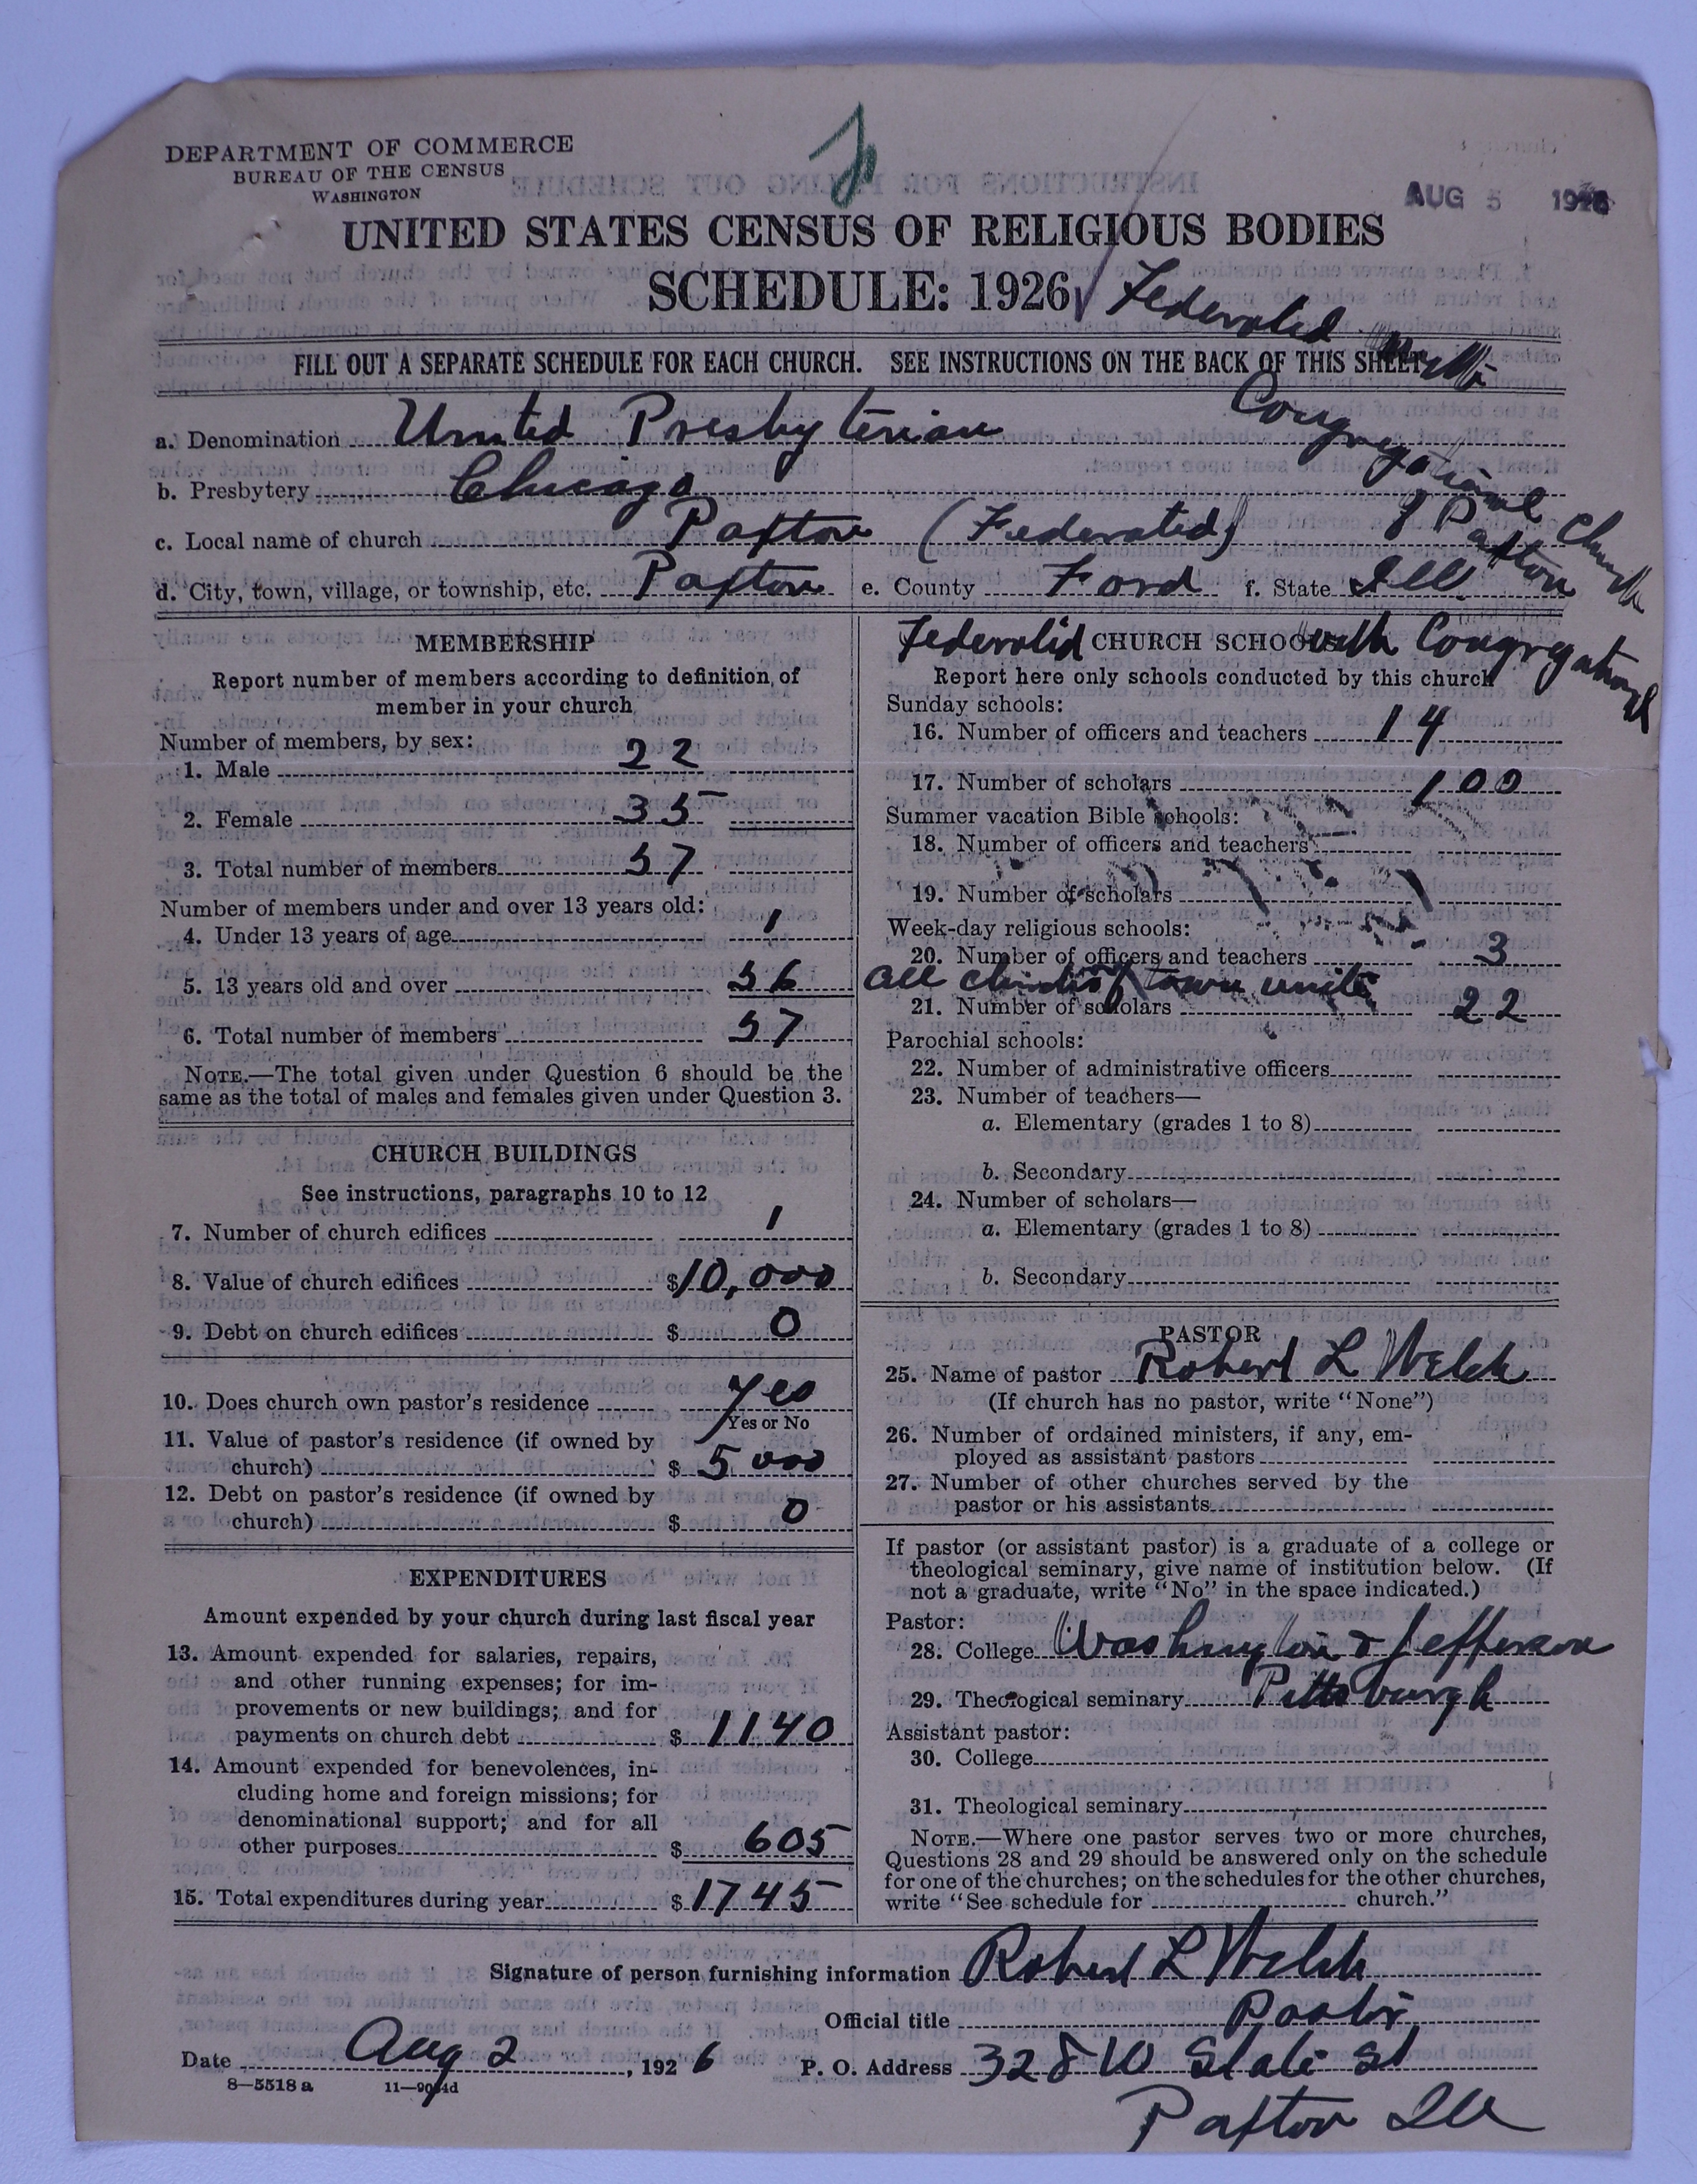 DEPARTMENT OF COMMERCE
BUREAU OF THE CENSUS
WASHINGTON
AUG 5 1926
UNITED STATES CENSUS OF RELIGIOUS BODIES
SCHEDULE: 1926
Federated with
Congregational
of Paxton Church
FILL OUT A SEPARATE SCHEDULE FOR EACH CHURCH. SEE INSTRUCTIONS ON THE BACK OF THIS SHEET
a. Denomination United Presbyterian
b. Presbytery Chicago
c. Local name of church Paxton (Federated)
d. City, town, village, or township, etc. Paxton e. County Ford f. State Ill.
MEMBERSHIP
Report number of members according to definition of
member in your church
Number of members, by sex:
1. Male 22
2. Female 35
3. Total number of members 57
Number of members under and over 13 years old:
4. Under 13 years of age 1
5. 13 years old and over 56
6. Total number of members 57
NOTE.—The total given under Question 6 should be the
same as the total of males and females given under Question 3.
CHURCH BUILDINGS
See instructions, paragraphs 10 to 12
7. Number of church edifices 1
8. Value of church edifices $10,000
9. Debt on church edifices $ 0
10. Does church own pastor's residence yes
Yes or No
11. Value of pastor's residence (if owned by
church) $ 5000
12. Debt on pastor's residence (if owned by
church) $ 0
EXPENDITURES
Amount expended by your church during last fiscal year
13. Amount expended for salaries, repairs,
and other running expenses; for im-
provements or new buildings; and for
payments on church debt $ 1140
14. Amount expended for benevolences, in-
cluding home and foreign missions; for
denominational support; and for all
other purposes $ 605
15. Total expenditures during year $ 1745
Federated CHURCH SCHOOLS with Congregational
Report here only schools conducted by this church
Sunday schools:
16. Number of officers and teachers 14
17. Number of scholars 100
Summer vacation Bible schools:
18. Number of officers and teachers
19. Number of scholars
Week-day religious schools:
20. Number of officers and teachers 3
all of town unite
21. Number of scholars 22
Parochial schools:
22. Number of administrative officers
23. Number of teachers—
a. Elementary (grades 1 to 8)
b. Secondary
24. Number of scholars—
a. Elementary (grades 1 to 8)
b. Secondary
PASTOR
25. Name of pastor Robert L Welch
(If church has no pastor, write "None")
26. Number of ordained ministers, if any, em-
ployed as assistant pastors
27. Number of other churches served by the
pastor or his assistants
If pastor (or assistant pastor) is a graduate of a college or
theological seminary, give name of institution below. (If
not a graduate, write "No" in the space indicated.)
Pastor:
28. College Washington & Jefferson
29. Theological seminary Pittsburgh
Assistant pastor:
30. College
31. Theological seminary
NOTE.—Where one pastor serves two or more churches,
Questions 28 and 29 should be answered only on the schedule
for one of the churches; on the schedules for the other churches,
write "See schedule for church."
Signature of person furnishing information Robert L Welch
Official title Pastor
Date Aug 2, 1926 P. O. Address 328 W State St
8—5518 a 11—9034d
Paxton Ill